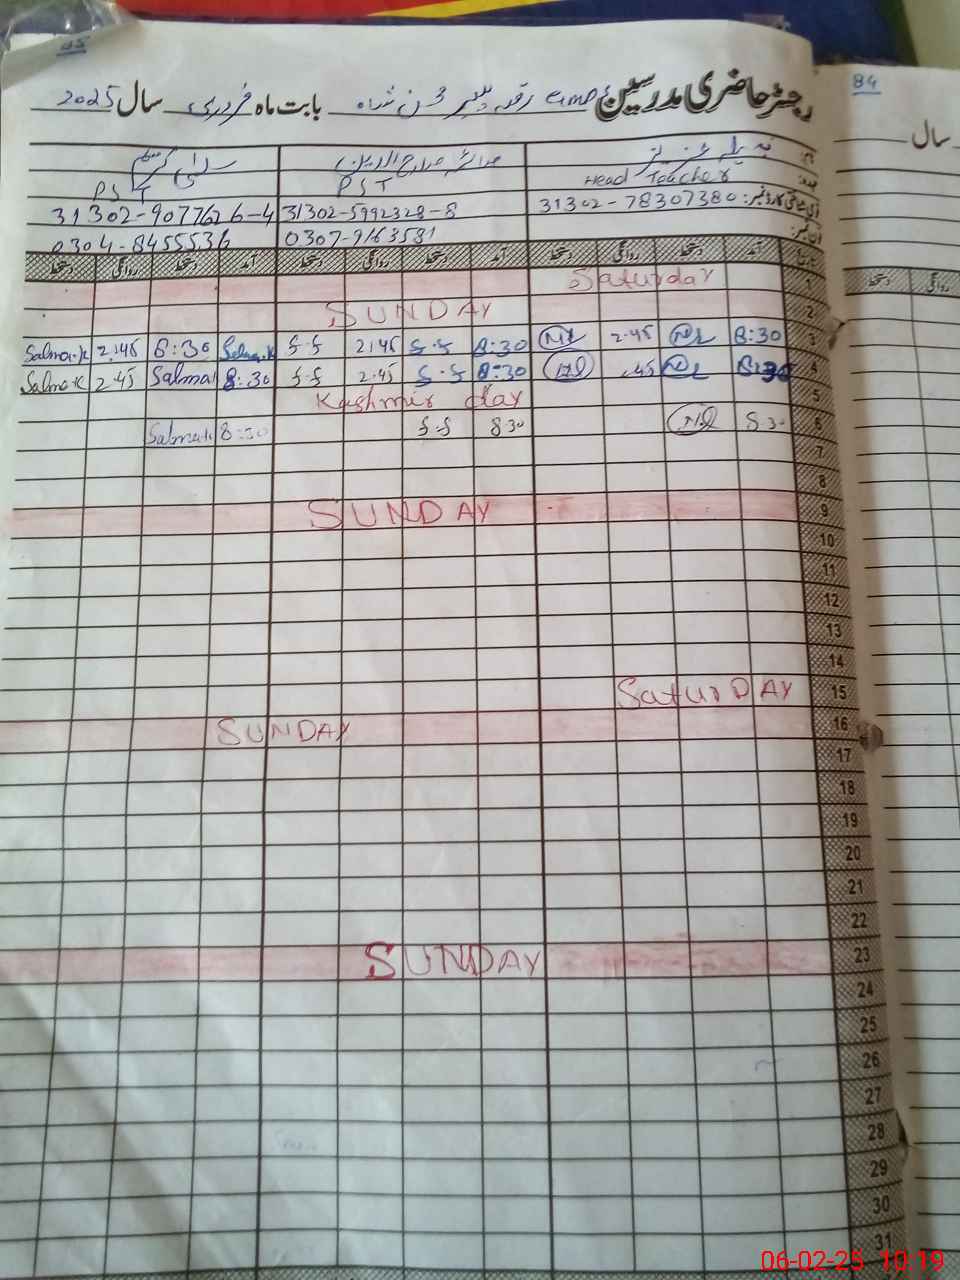 85
رجسٹر حاضری مدرسین GMPS رقبہ پیر محسن شاہ بابت ماہ فروری سال 2025
84
سال
نبیلہ عزیز
سلمیٰ کریم
Head Teacher PST PST
31302-78307380 31302-5992328-8 31302-9077626-4
0307-9163581 0304-8455536
آمد دستخط روانگی دستخط آمد دستخط روانگی دستخط
دستخط روانگی
Saturday 1
SUNDAY 2
8:30 2.45 8:30 S.S 2:45 S.S Salma.K 8:30 2:45 Salma.K 3
8:30 .45 8:30 S.S 2.45 S.S 8:30 Salma 2.45 Salma.K 4
Kashmir day 5
8 30 8 30 S.S 8:30 Salma K 6
7
8
SUNDAY 9
10
11
12
13
14
SaturDAY 15
SUNDAY 16
17
18
19
20
21
22
SUNDAY 23
24
25
26
27
28
29
30
31
06-02-25 10:19